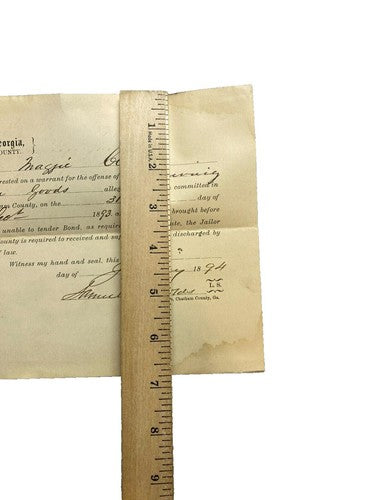 eorgia,
OUNTY.
Maggie
rested on a warrant for the offense of
Goods alleg committed in
m County, on the 31 day of
1893 a brought before
unable to tender Bond, as requir ate, the Jailor
ounty is required to received and saf discharged by
f law.
Witness my hand and seal, this ?
day of y 1894
Samuel L. S.
Chatham County, Ga.
1 Made in U.S.A.
2
3
4
5
6
7
8
9